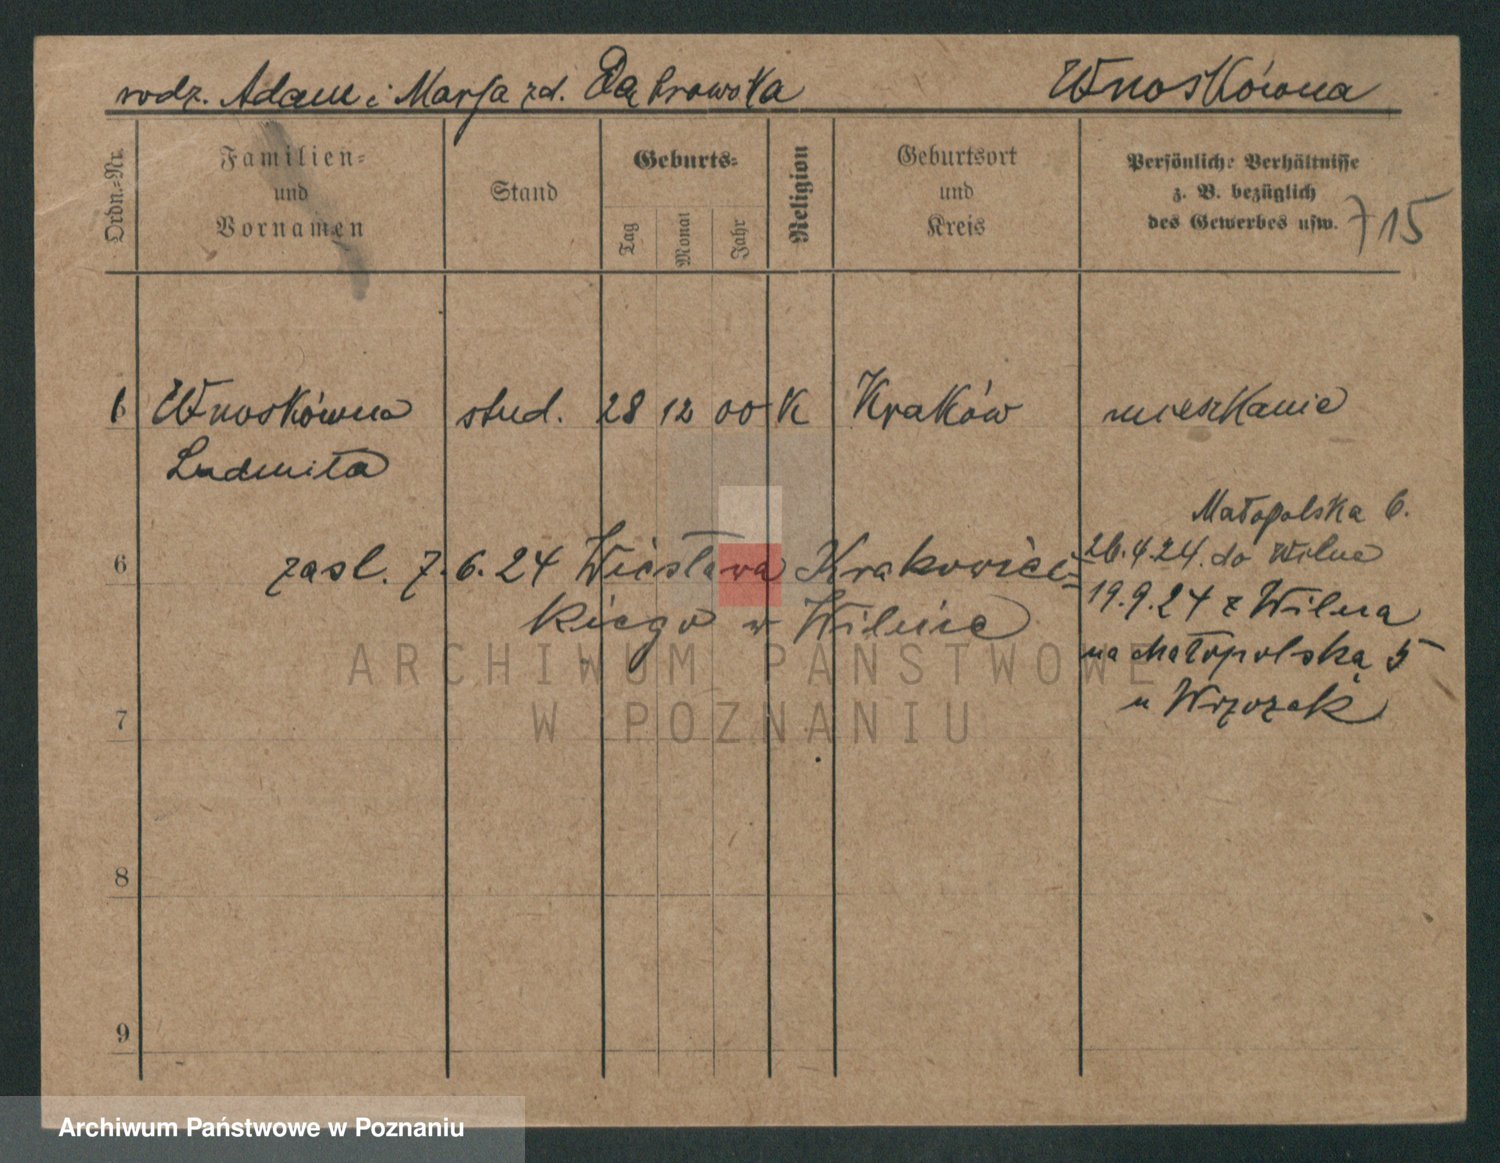 rodz. Adam i Marja zd. Dąbrowska Wnoskówna
Ordn.-Nr.
Familien-
und
Vornamen
Stand
Geburts-
Tag
Monat
Jahr
Religion
Geburtsort
und
Kreis
Persönliche Verhältnisse
z. B. bezüglich
des Gewerbes usw.
715
Wnoskówna stud. 28 12 00 K Kraków mieszkanie
Ludmiła
Małopolska 6.
26.4.24. do Wilna
6 zasl. 7.6.24 Wiesława Krakowiec-
19.9.24 z Wilna
kiego w Wilnie
na Małopolską 5
u Wrzozek
7
8
9
ARCHIWUM PAŃSTWOWE
W POZNANIU
Archiwum Państwowe w Poznaniu